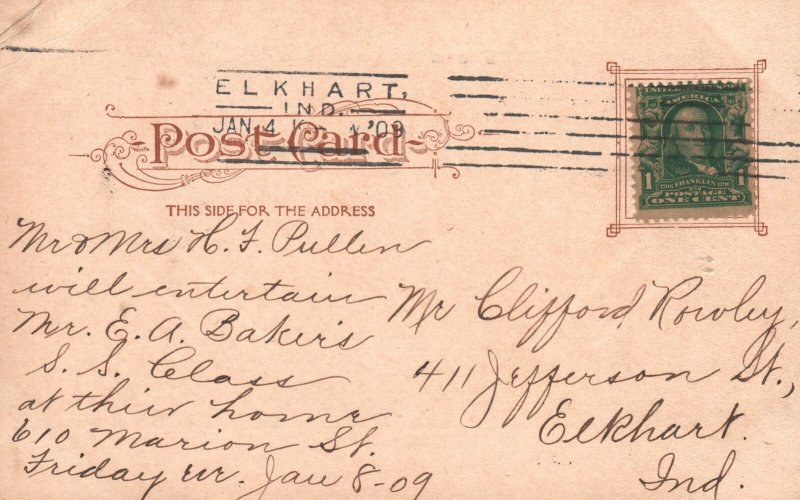 ELKHART,
IND.
JAN 4
1 '09
Post Card
THIS SIDE FOR THE ADDRESS
AMERICA
1 1706 FRANKLIN 1790 1
POSTAGE
ONE CENT
Mr & Mrs H. F. Pullen
will entertain
Mr. E. A. Baker's
S. S. Class
at thier home
610 Marion St.
Friday ev. Jan 8-09
Mr Clifford Rowley,
411 Jefferson St.,
Elkhart.
Ind.